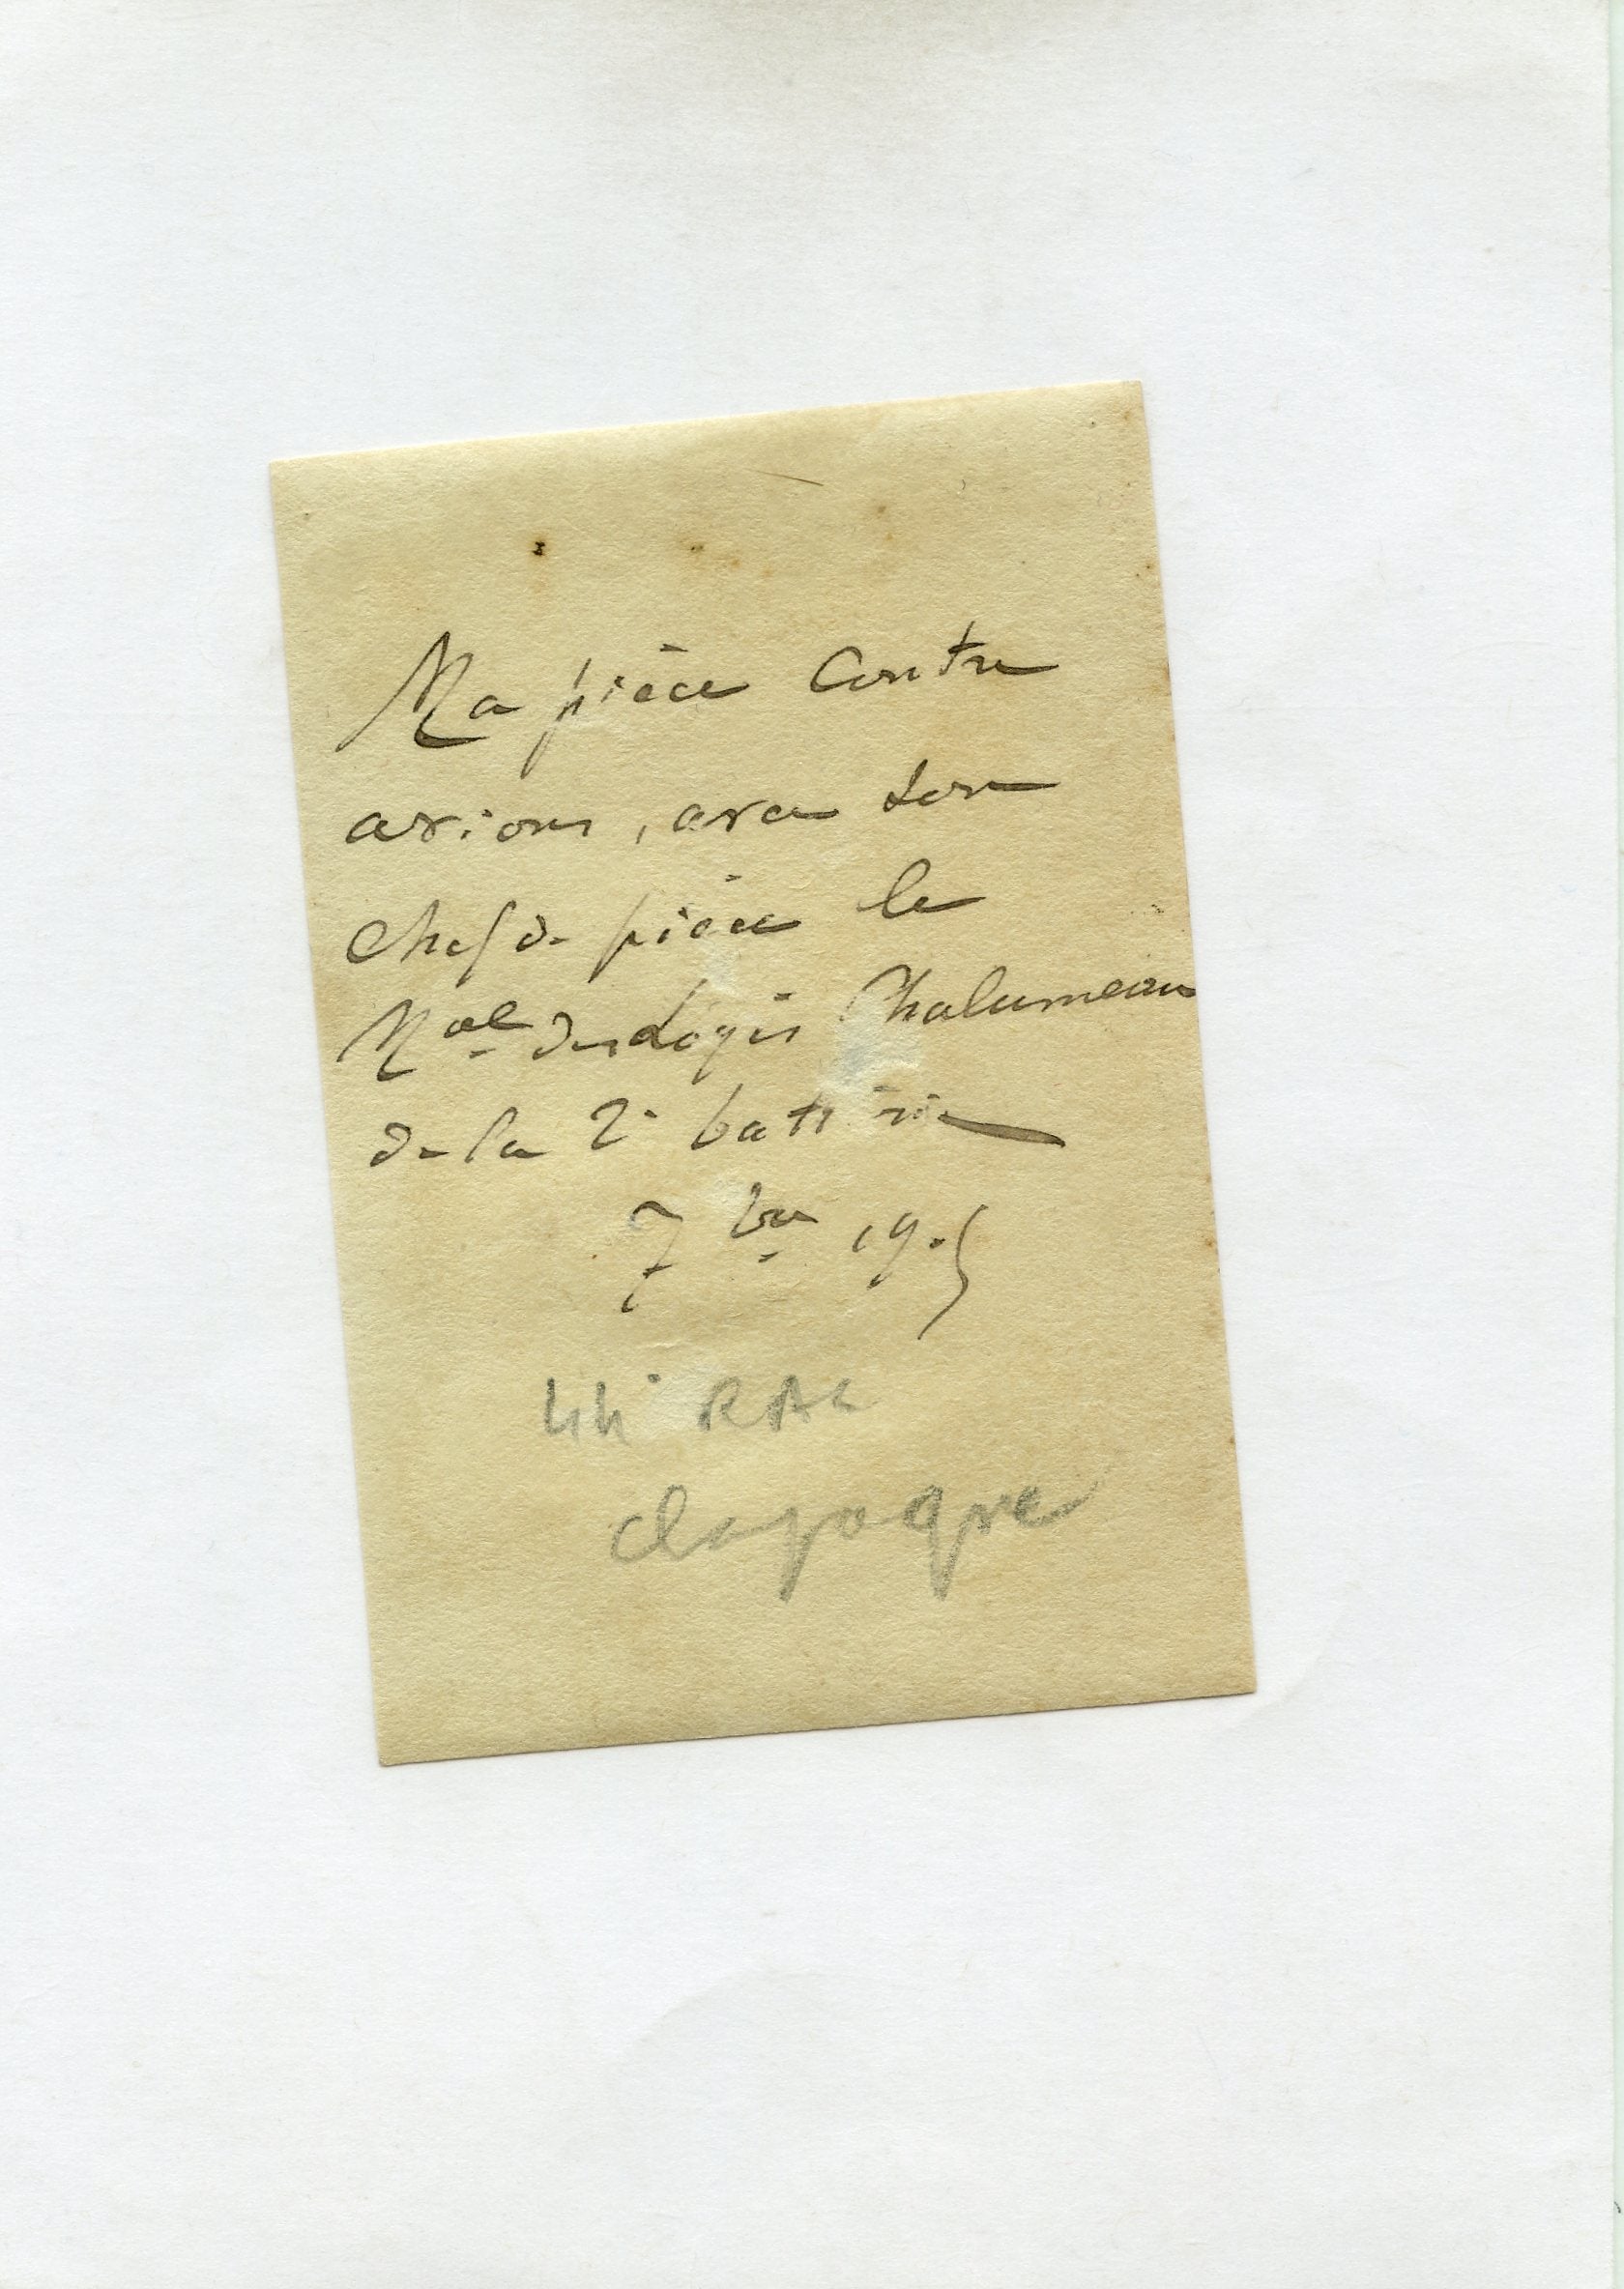 Ma pièce contre
avions, avec son
chef de pièce le
Mal des Logis Chalumeau
de la 2e batterie
7bre 19.5
44e RAC